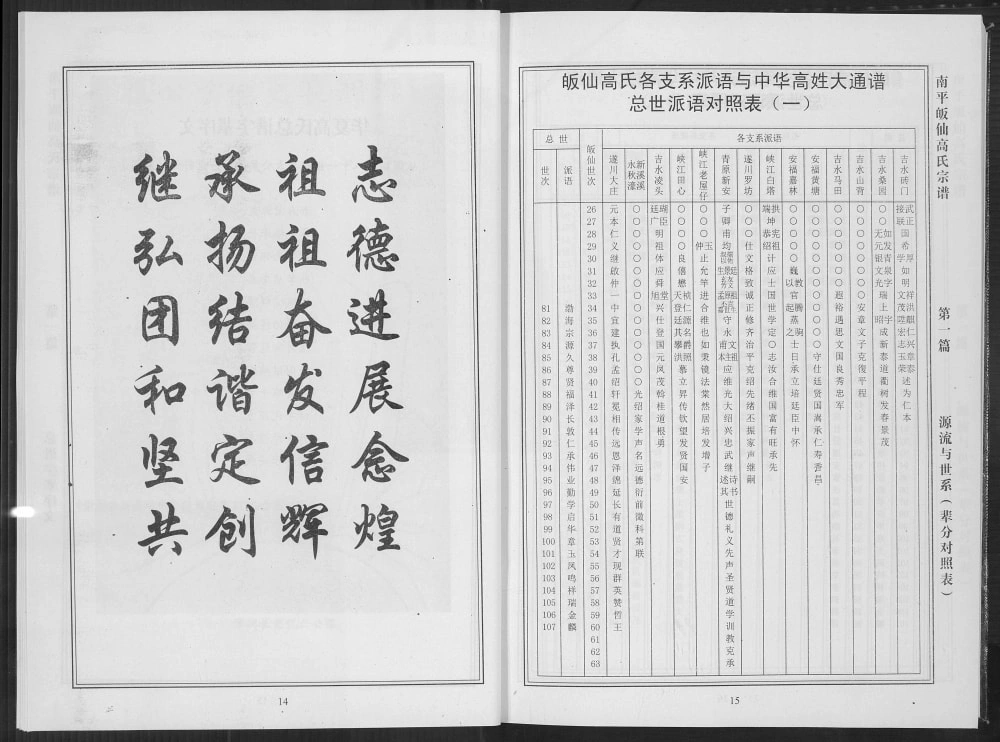 继承祖志
弘扬祖德
团结奋进
和谐发展
坚定信念
共创辉煌
14
皈仙高氏各支系派语与中华高姓大通谱
总世派语对照表（一）
总世
世次
81 82 83 84 85 86 87 88 89 90 91 92 93 94 95 96 97 98 99 100 101 102 103 104 105 106 107
派语
渤海宗源久尊贤福泽长敦仁承伟业勤学启华章玉凤鸣祥瑞金麟
皈仙世次
26 27 28 29 30 31 32 33 34 35 36 37 38 39 40 41 42 43 44 45 46 47 48 49 50 51 52 53 54 55 56 57 58 59 60 61 62 63
各支系派语
遂川大庄
元本仁义继啟仲一中宜建执孔孟绍轩冕相传远恩泽绵延长有道贤才现群英赞哲王
新溪溪
水秋濠
○○○○○○○○○○○○○○○○光绍家学声名远德衍前徽科第联
吉水凌头
廷瑚广臣明祖体应舜旭堂兴仕登国元风茂翰桂道根勇
峡江田心
○○○○良僖懋天桢登仁廷源其名攀爵洪照慕立昇传钦望发贤国安
峡江老屋仔
○○○仲玉止允竿进合维也如秉镜法棠然居培发增子
青原新安
子卿甫均
守永甫文本祖应维光大绍兴忠武继述诗其书世德礼义先声圣贤道学训教克承
遂川罗坊
○○○仕文格致诚正修齐治平克绍先绪丕振家声继嗣
峡江白塔
端拱坤恭宪绍祖计应士国世学定○志汝合维国富有旺承先
安福嘉林
○○○○○巍以教官起腾蒸之驹士日承立培廷臣中怀
安福黄塘
○○○○○○○○○○○○守仕廷贤国嵩承仁寿耆昌
吉水马田
○○○○○○○廻裕遇思文国良秀忠军
吉水山背
○○○○○○○○安章文子克復平程
吉水桑园
○○无如元发银青文泉光宇瑞上昭成新泰道衢树发春景茂
吉水砖门
接武联正国希学厚如明文祥茂洪陞麒宏仁志兴玉章荣泰述为仁本
南平皈仙高氏宗谱
第一篇
源流与世系（辈分对照表）
15